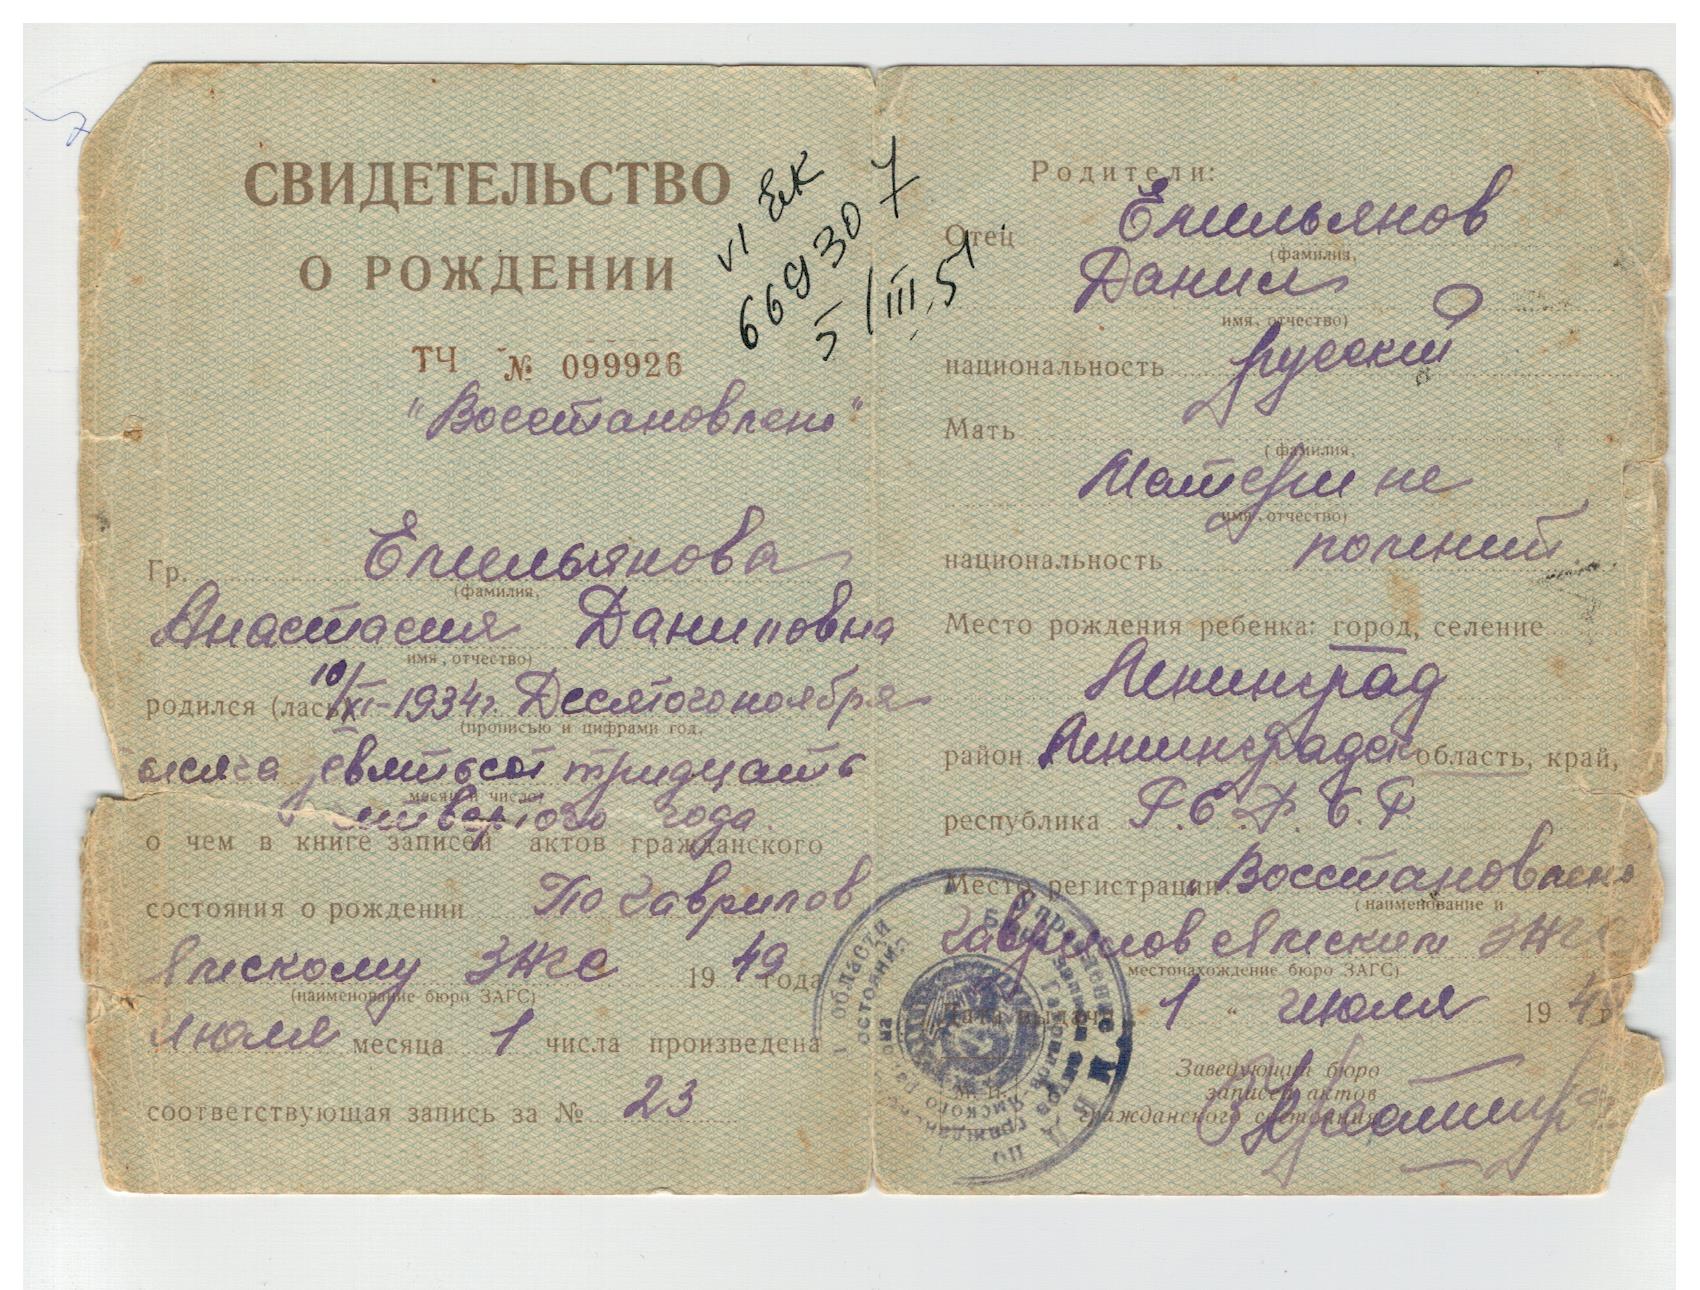 СВИДЕТЕЛЬСТВО
О РОЖДЕНИИ
ТЧ № 099926
"Восстановлено"
VI ЕК
669307
5/III.51.
Гр. Емельянова
(фамилия,
Анастасия Даниловна
имя, отчество)
родился (лась) 10/XI-1934г. Десятого ноября
(прописью и цифрами год,
тысяча девятьсот тридцать
месяц и число)
четвертого года.
о чем в книге записей актов гражданского
состояния о рождении По Гаврилов
Ямскому ЗАГС 1949 года
(наименование бюро ЗАГС)
Июля месяца 1 числа произведена
соответствующая запись за № 23
Родители:
Отец Емельянов
(фамилия,
Данил
имя, отчество)
национальность русский
Мать
(фамилия,
Матери не
имя, отчество)
национальность помнит
Место рождения ребенка: город, селение
Ленинград
район Ленинградск область, край,
республика Р.С.Ф.С.Р
Место регистрации "Восстановлено
(наименование и
Гаврилов Ямским ЗАГС
местонахождение бюро ЗАГС)
Дата выдачи 1 " июля 1949 г.
М. П.
Заведующий бюро
записей актов
гражданского состояния